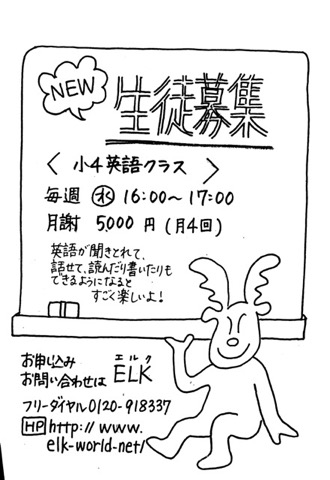 NEW
生徒募集
〈 小4英語クラス 〉
毎週 ㊌ 16:00〜17:00
月謝 5,000 円 (月4回)
英語が聞きとれて、
話せて、読んだり書いたりも
できるようになると
すごく楽しいよ！
お申し込み
お問い合わせは ELK
エルク
フリーダイヤル0120-918337
HP http://www.
elk-world-net/